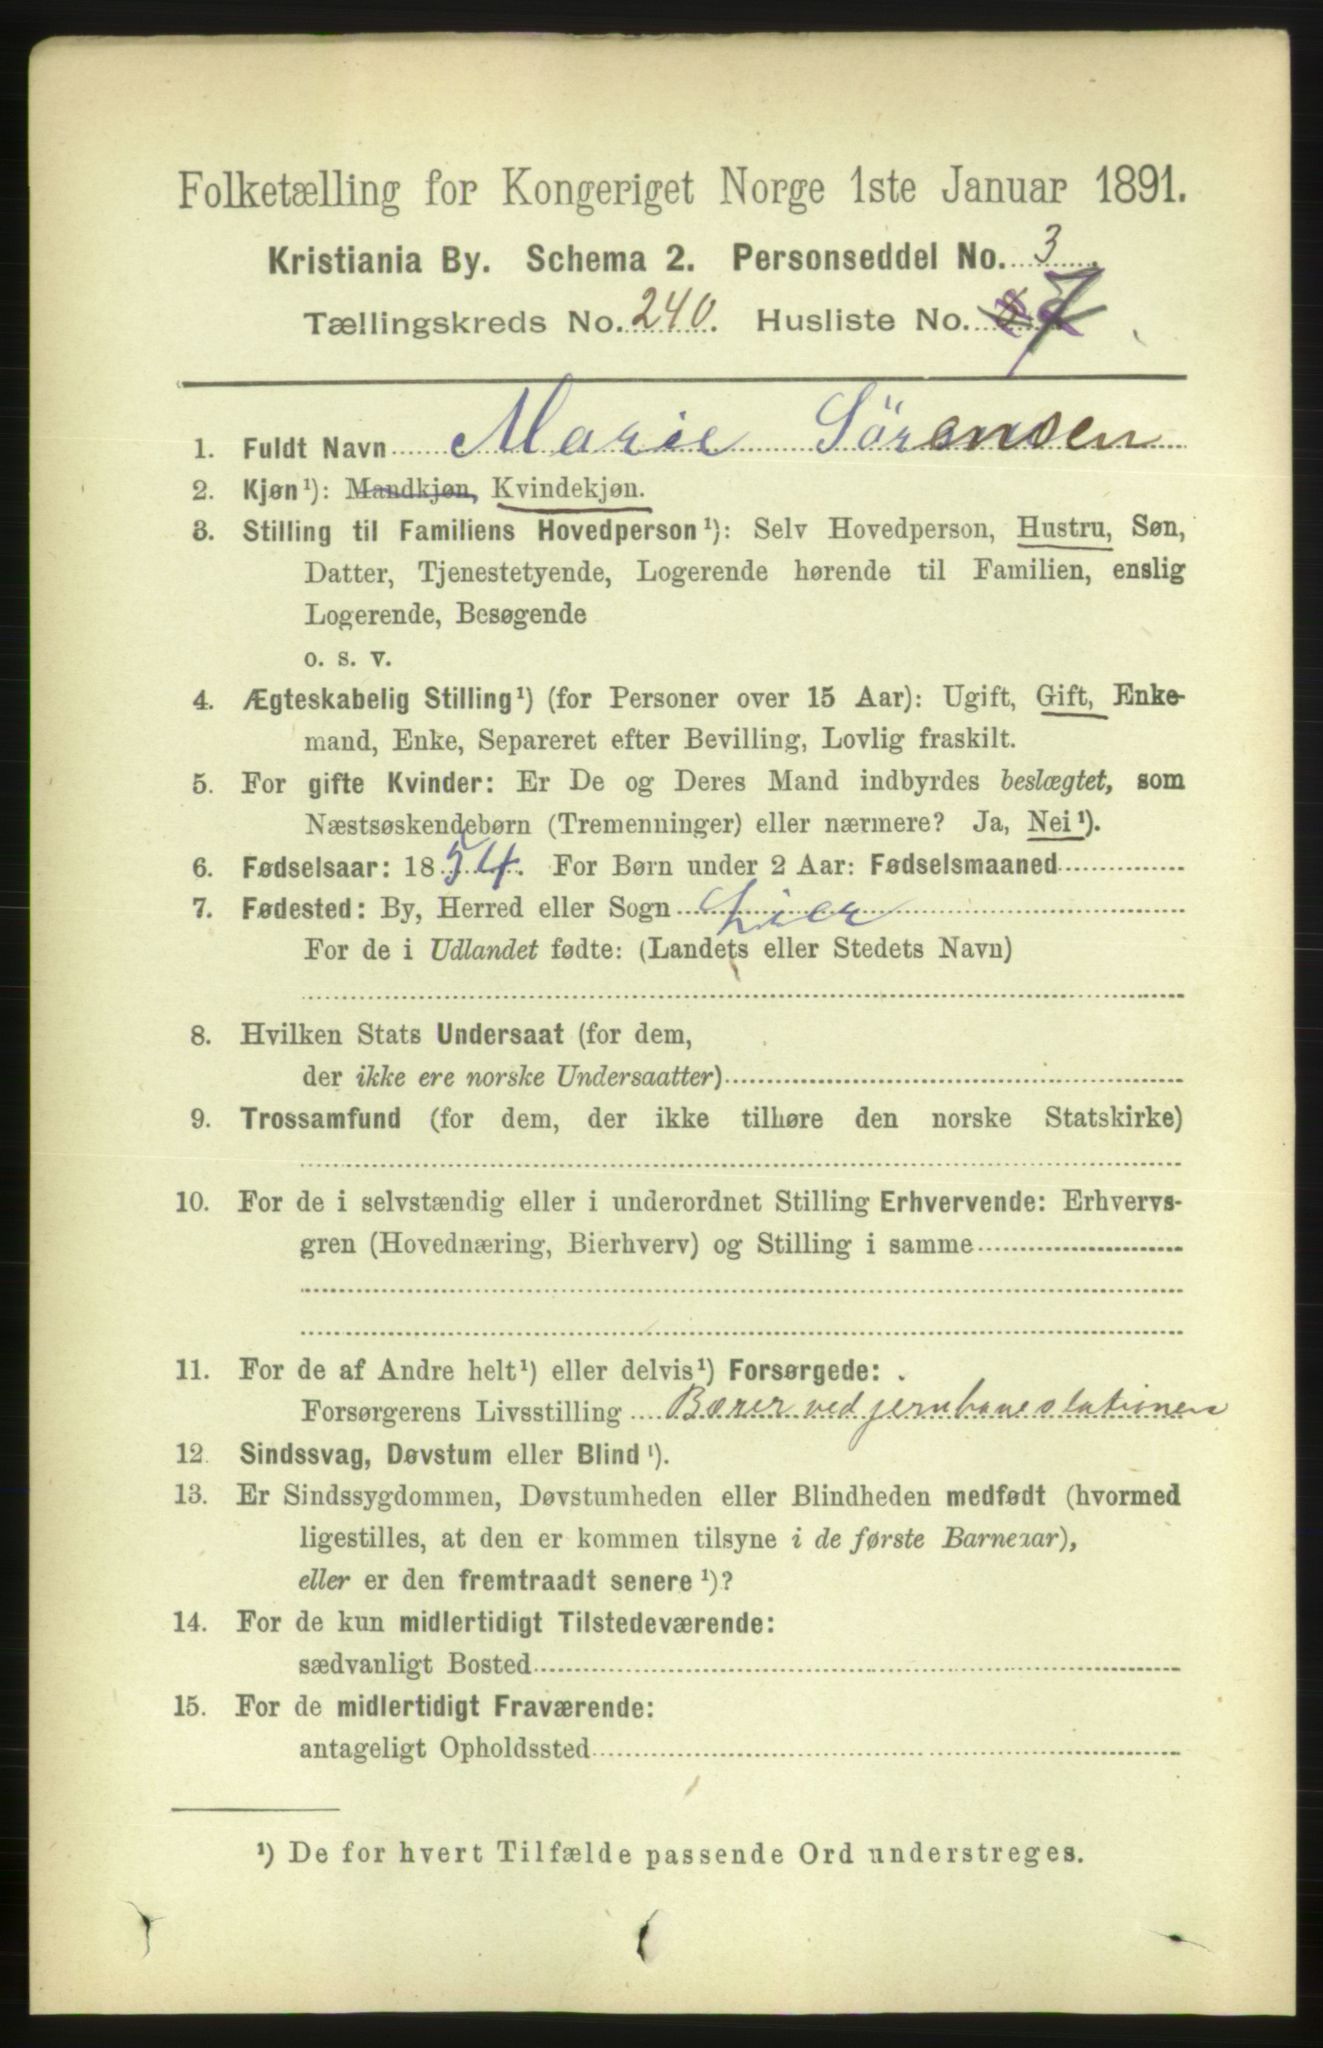 Folketælling for Kongeriget Norge 1ste Januar 1891.
Kristiania By. Schema 2. Personseddel No. 3.
Tællingskreds No. 240. Husliste No. 7
1. Fuldt Navn Marie Sörensen
2. Kjøn¹): Mandkjøn, Kvindekjøn.
3. Stilling til Familiens Hovedperson¹): Selv Hovedperson, Hustru, Søn,
Datter, Tjenestetyende, Logerende hørende til Familien, enslig
Logerende, Besøgende
o. s. v.
4. Ægteskabelig Stilling¹) (for Personer over 15 Aar): Ugift, Gift, Enke-
mand, Enke, Separeret efter Bevilling, Lovlig fraskilt.
5. For gifte Kvinder: Er De og Deres Mand indbyrdes beslægtet, som
Næstsøskendebørn (Tremenninger) eller nærmere? Ja, Nei¹).
6. Fødselsaar: 1854. For Børn under 2 Aar: Fødselsmaaned
7. Fødested: By, Herred eller Sogn Lier
For de i Udlandet fødte: (Landets eller Stedets Navn)
8. Hvilken Stats Undersaat (for dem,
der ikke ere norske Undersaatter)
9. Trossamfund (for dem, der ikke tilhøre den norske Statskirke)
10. For de i selvstændig eller i underordnet Stilling Erhvervende: Erhvervs-
gren (Hovednæring, Bierhverv) og Stilling i samme
11. For de af Andre helt¹) eller delvis¹) Forsørgede:
Forsørgerens Livsstilling Bærer ved jernbanestationen
12. Sindssvag, Døvstum eller Blind¹).
13. Er Sindssygdommen, Døvstumheden eller Blindheden medfødt (hvormed
ligestilles, at den er kommen tilsyne i de første Barneaar),
eller er den fremtraadt senere¹)?
14. For de kun midlertidigt Tilstedeværende:
sædvanligt Bosted
15. For de midlertidigt Fraværende:
antageligt Opholdssted
¹) De for hvert Tilfælde passende Ord understreges.